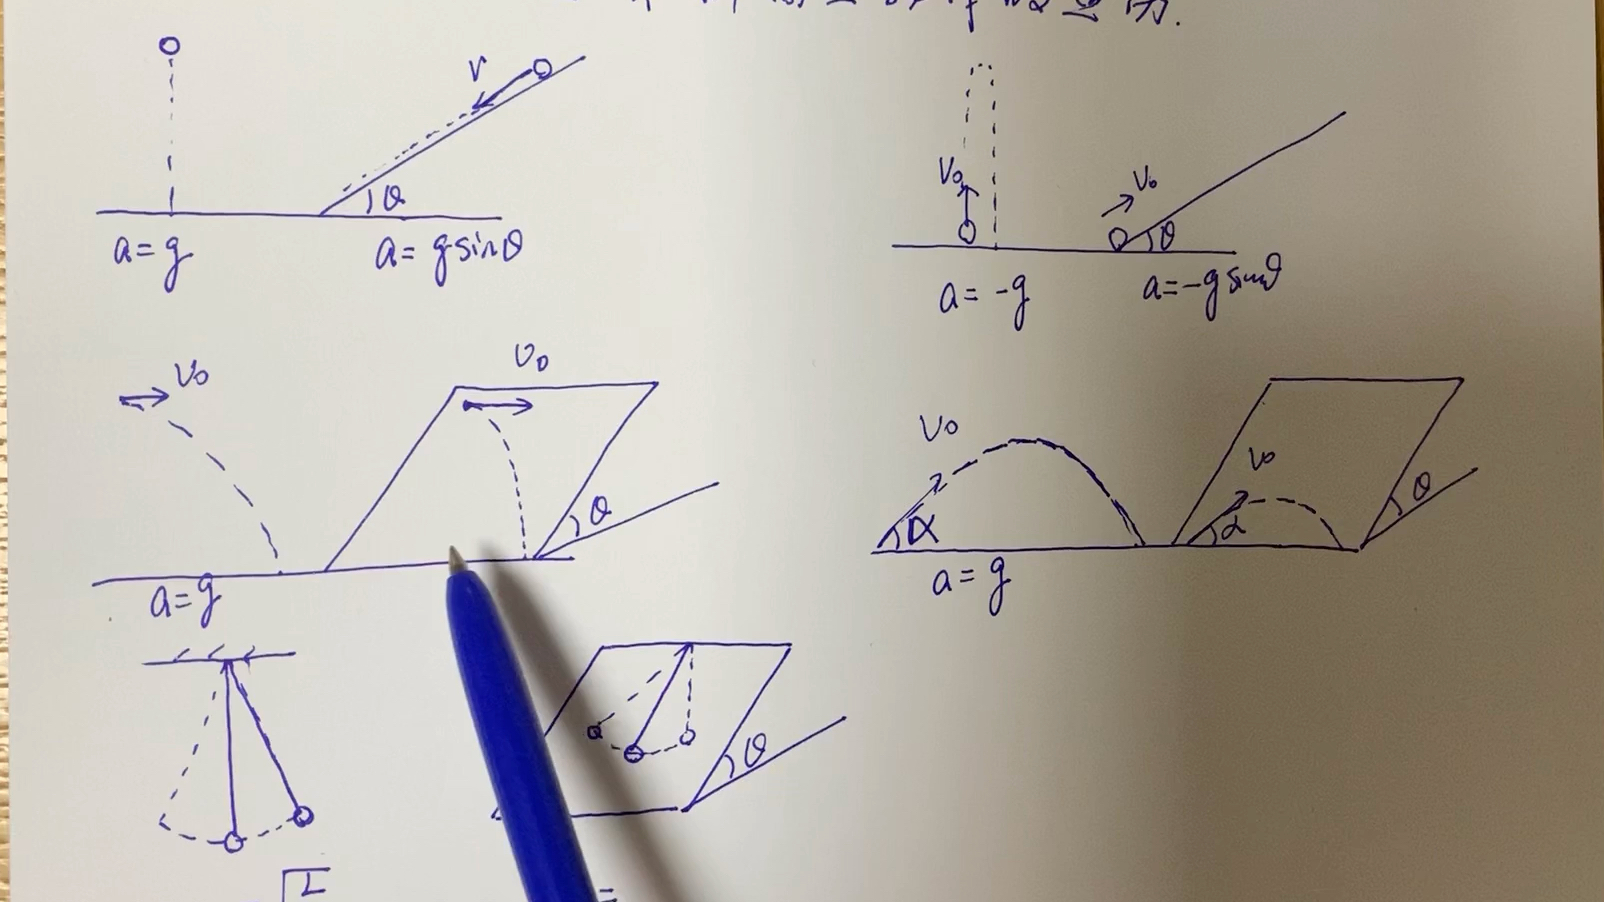 V
θ
a=g
a= gsinθ
V₀
V₀
θ
a= -g
a=-g sinθ
V₀
V₀
θ
a=g
V₀
α
V₀
α
θ
a= g
θ
L
=